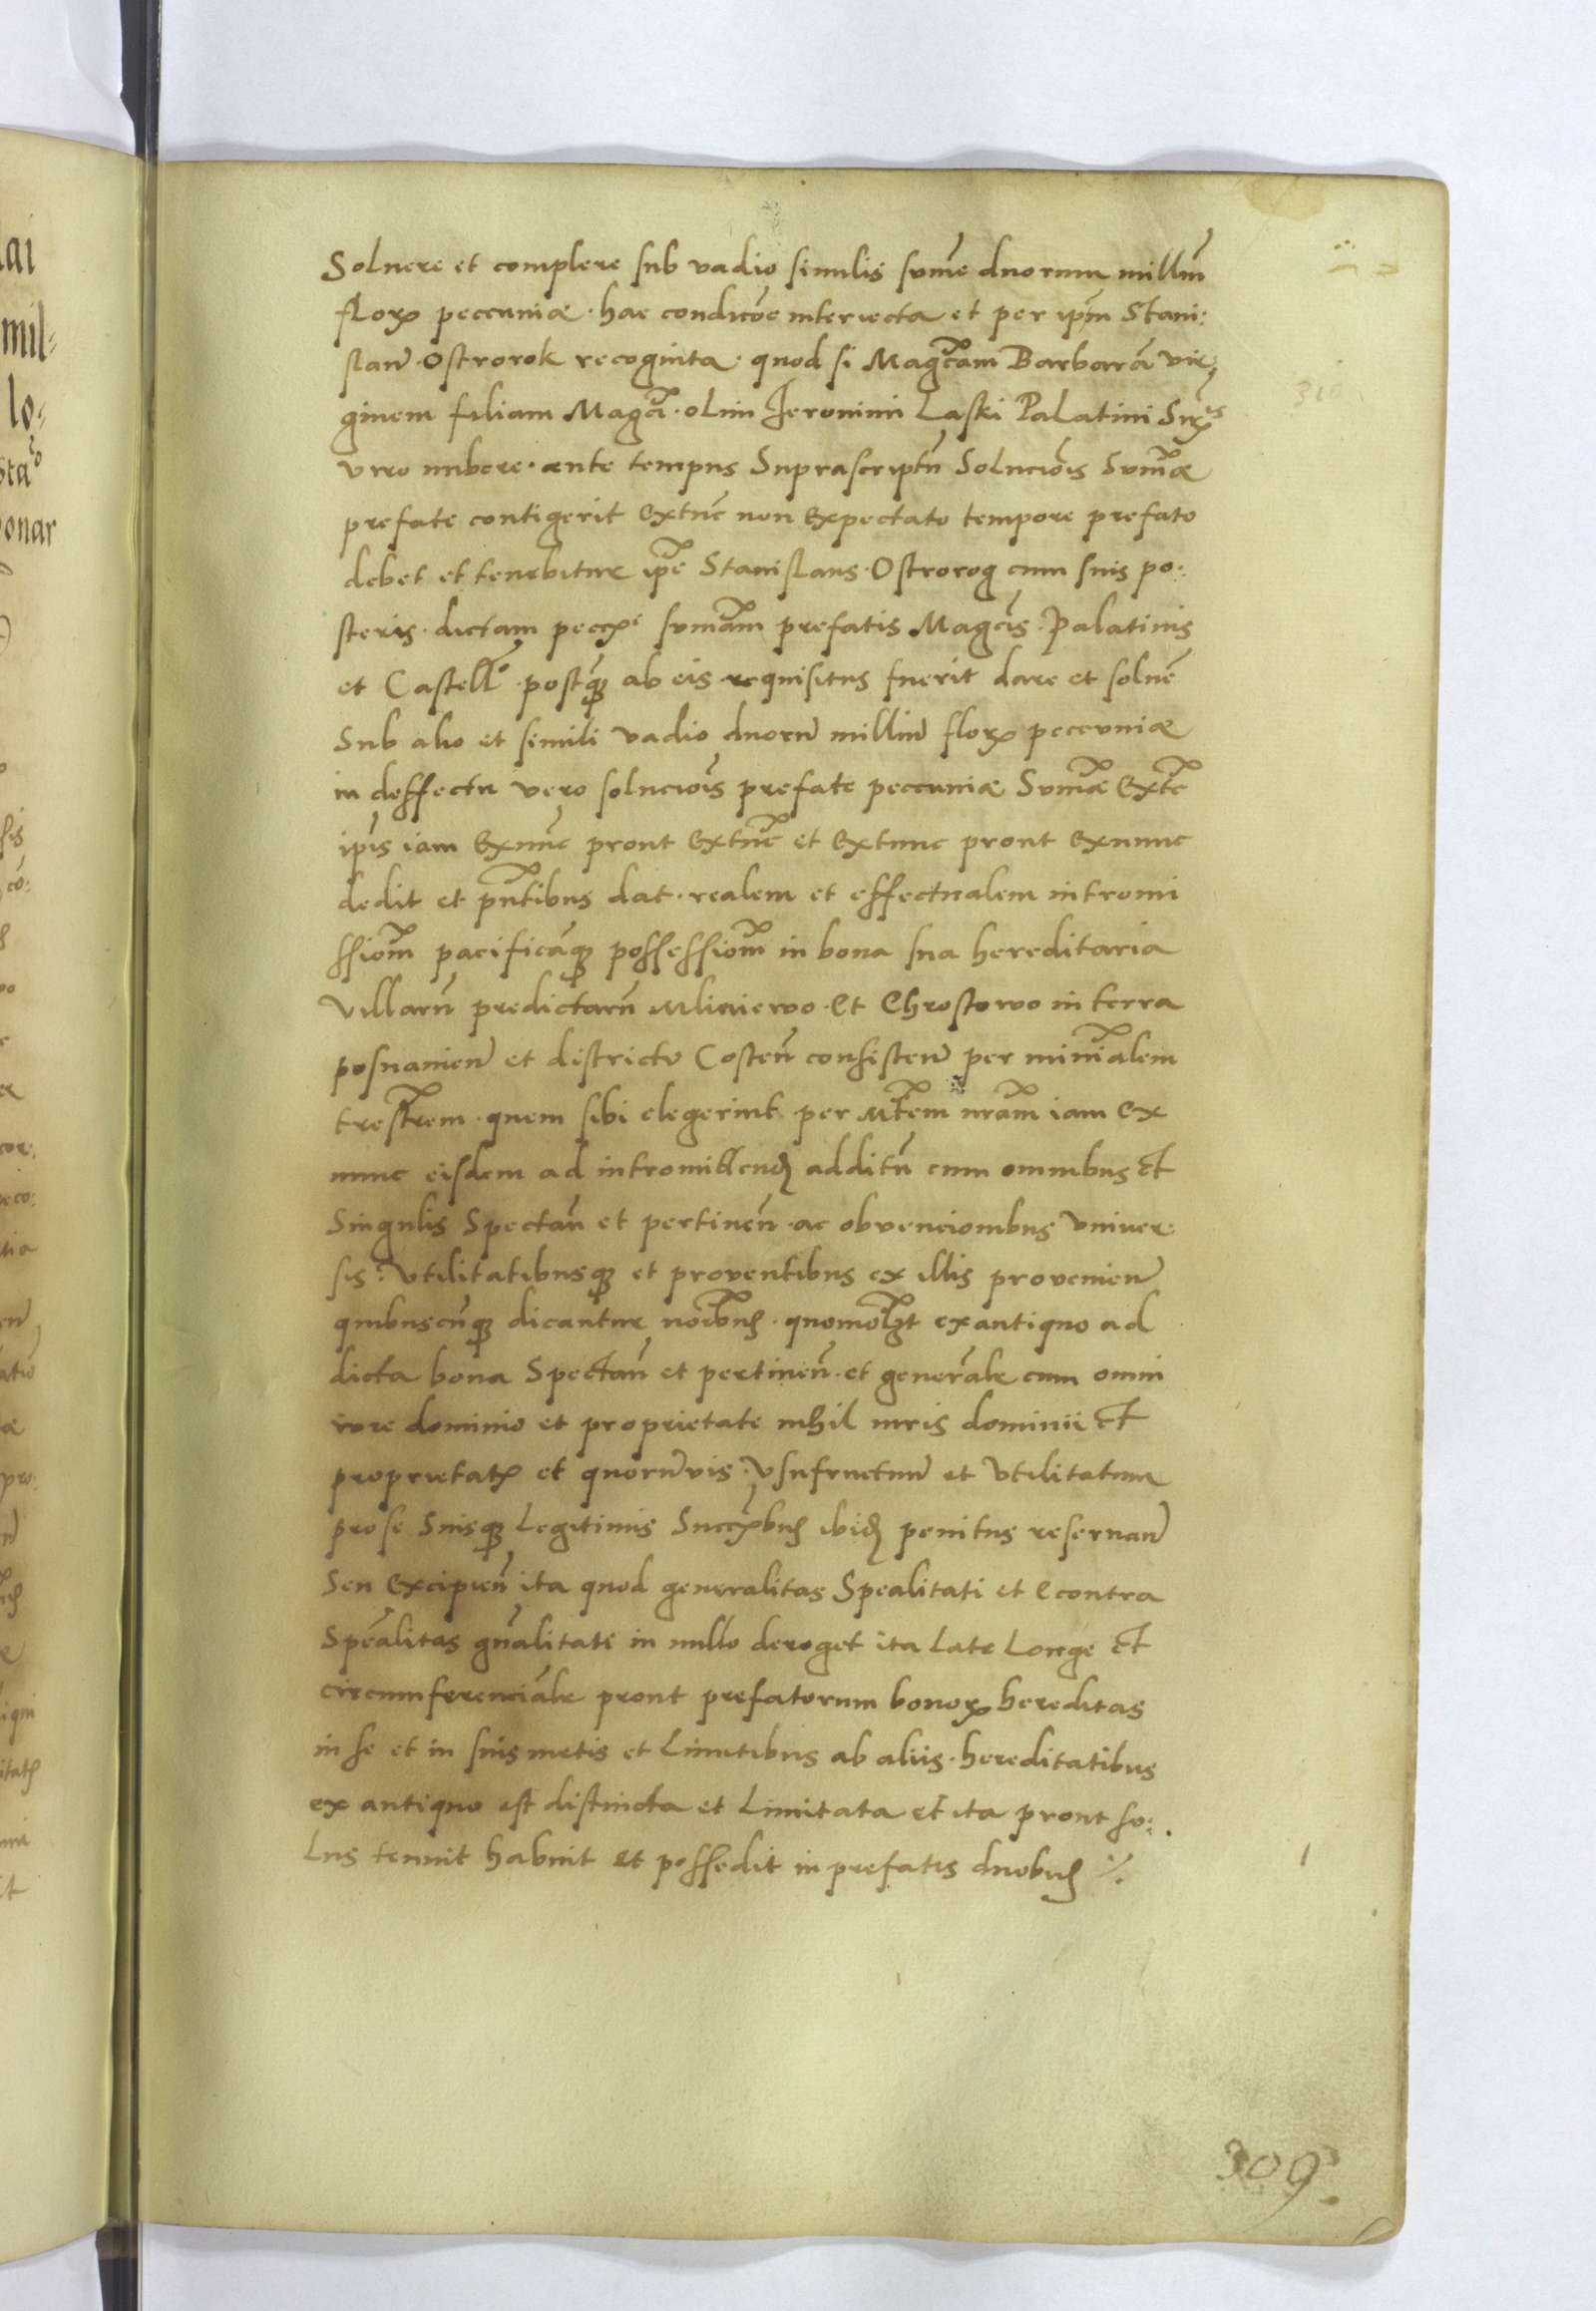 Soluere et complere sub vadio similis sume duorum milliu
florꝝ pecuniæ · hac condicoe interiecta et per ipm Stani:
slau Ostrorok recognita · quod si Magcam Barbarā vir,
ginem filiam Magci · olim Jeronimi Laski Palatini
viro nubere · ante tempus Suprascriptu Solucois Sumæ
prefate contigerit extuc non expectato tempore prefato
debet et tenebitur ipe Stanislaus · Ostrorog cum suis po:
steris · dictam sumam prefatis Magcis · Palatinis
et Castello · postq̄ꝫ ab eis requisitus fuerit dare et soluē
Sub alio et simili vadio duoru milliu florꝝ pecuniæ
in deffectu vero solucois prefate peccuniæ Sumæ Extc
ipis iam Exnuc prout Extuc et Extunc prout Exnunc
dedit et pntibus dat · realem et effectualem intromi
ssiom pacificāqꝫ possessiom in bona sua hereditaria
villaru predictaru Mliniewo · Et Chrostowo in terra
posnanien et districtu Costen consisten per minialem
trestrem · quem sibi elegerint per Mtem nram iam Ex
nunc eisdem ad intromittend additu cum omnibus Et
Singulis Spectan et pertinen · ac obvencionibus vniuer
sis: vtilitatibusqꝫ et proventibus ex illis provenien
quibuscuqꝫ dicantur noibus · quomolꝫt exantiquo ad
dicta bona Spectan et pertinen · et generalr cum omni
iure dominio et proprietate nihil iuris dominii Et
proprietatꝭ et quoruvis · vsufructuu et vtilitatum
pro se Suisqꝫ Legitimis Succꝝbus ibid penitus reseruan
Seu Excipien ita quod generalitas Spealitati et Econtra
Spealitas gnalitati in nullo deroget ita Late Longe Et
circumferencialr prout prefatorum bonoꝝ hereditas
in se et in suis metis et Limitibus ab aliis · hereditatibus
ex antiquo est distincta et Limitata et ita prout so:
Lus tenuit habuit et possedit in prefatis duobus ·/.
309